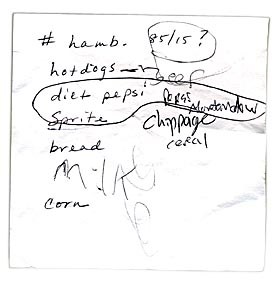 # hamb. 85/15?
hotdogs — beef
diet pepsi Pepsi
Sprite chippage
cereal
bread
Milk
corn